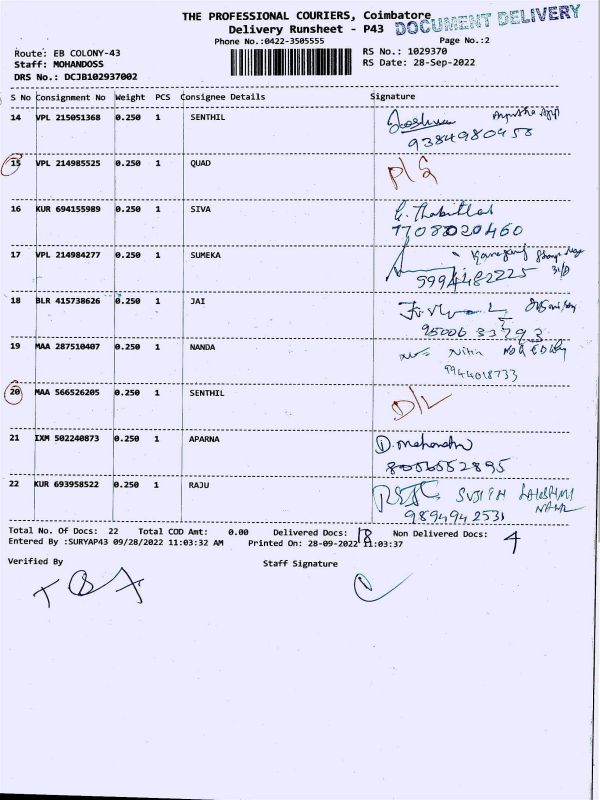 THE PROFESSIONAL COURIERS, Coimbatore
DOCUMENT DELIVERY
Delivery Runsheet - P43
Phone No.:0422-3505555 Page No.:2
Route: EB COLONY-43 RS No.: 1029370
Staff: MOHANDOSS RS Date: 28-Sep-2022
DRS No.: DCJB102937002
S No Consignment No Weight PCS Consignee Details Signature
14 VPL 215051368 0.250 1 SENTHIL
9384980458
15 VPL 214985525 0.250 1 QUAD
16 KUR 694155989 0.250 1 SIVA
7708020460
17 VPL 214984277 0.250 1 SUMEKA
9994482225
18 BLR 415738626 0.250 1 JAI
95006 33793
19 MAA 287510407 0.250 1 NANDA Nitin
9944018733
20 MAA 566526205 0.250 1 SENTHIL D/L
21 IXM 502240873 0.250 1 APARNA
8056552895
22 KUR 693958522 0.250 1 RAJU
9894942531
Total No. Of Docs: 22 Total COD Amt: 0.00 Delivered Docs: 18 Non Delivered Docs: 4
Entered By :SURYAP43 09/28/2022 11:03:32 AM Printed On: 28-09-2022 11:03:37
Verified By Staff Signature